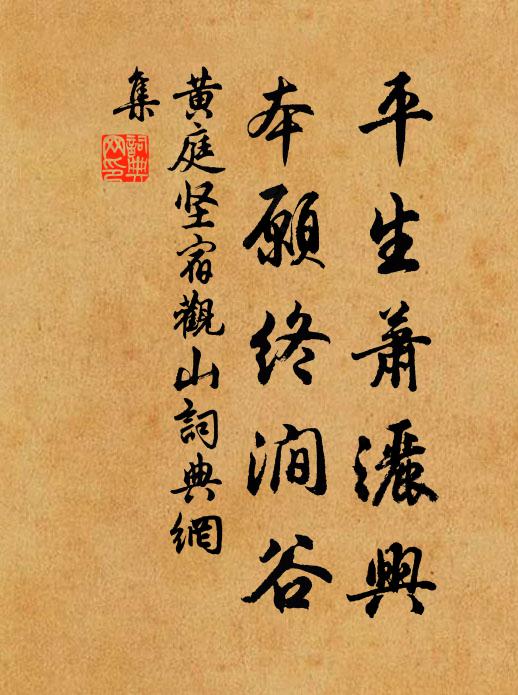 平生萧灑興
本願終澗谷
黄庭坚宿觀山詞典網
集
詞典網印